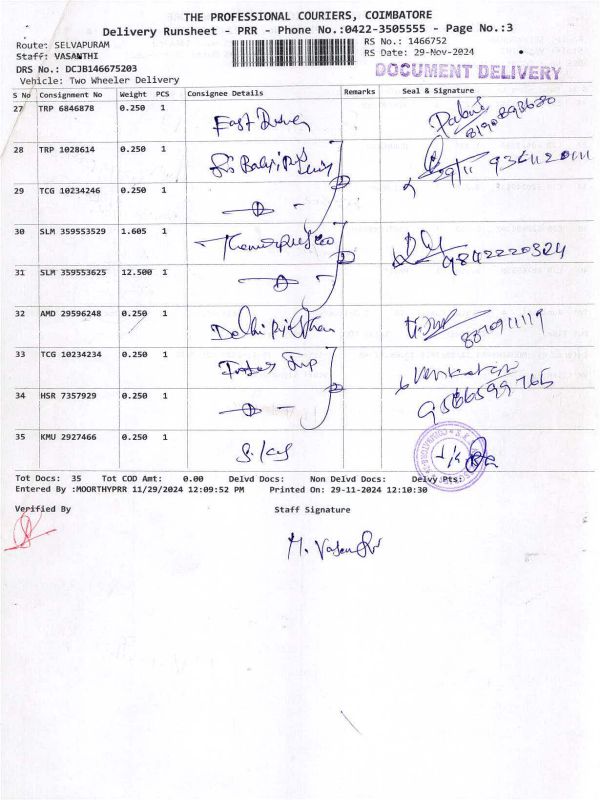 THE PROFESSIONAL COURIERS, COIMBATORE
Delivery Runsheet - PRR - Phone No.:0422-3505555 - Page No.:3
Route: SELVAPURAM RS No.: 1466752
Staff: VASANTHI RS Date: 29-Nov-2024
DRS No.: DCJB146675203 DOCUMENT DELIVERY
Vehicle: Two Wheeler Delivery
S No Consignment No Weight PCS Consignee Details Remarks Seal & Signature
27 TRP 6846878 0.250 1
28 TRP 1028614 0.250 1
29 TCG 10234246 0.250 1
30 SLM 359553529 1.605 1
9842220324
31 SLM 359553625 12.500 1
32 AMD 29596248 0.250 1 Delhi
33 TCG 10234234 0.250 1
9566599765
34 HSR 7357929 0.250 1
35 KMU 2927466 0.250 1
Tot Docs: 35 Tot COD Amt: 0.00 Delvd Docs: Non Delvd Docs: Delvy Pts:
Entered By :MOORTHYPRR 11/29/2024 12:09:52 PM Printed On: 29-11-2024 12:10:30
Verified By Staff Signature